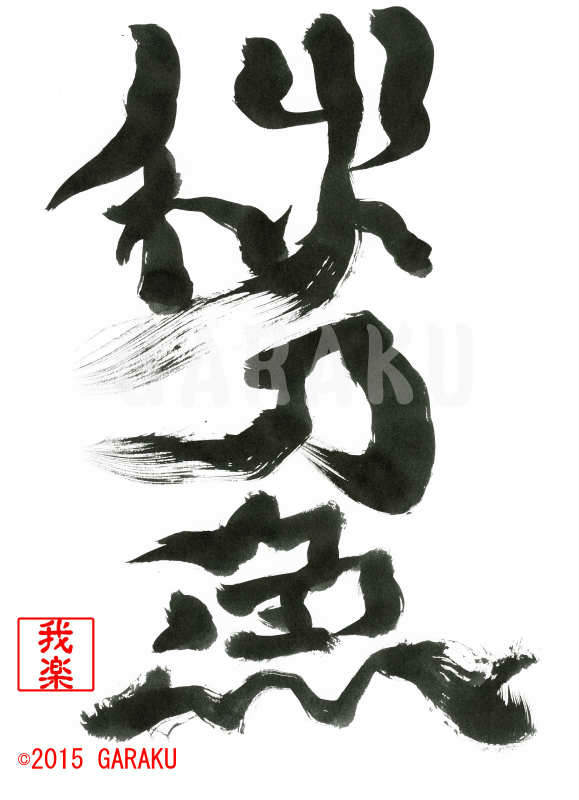 秋
刀
魚
GARAKU
我楽
©2015 GARAKU